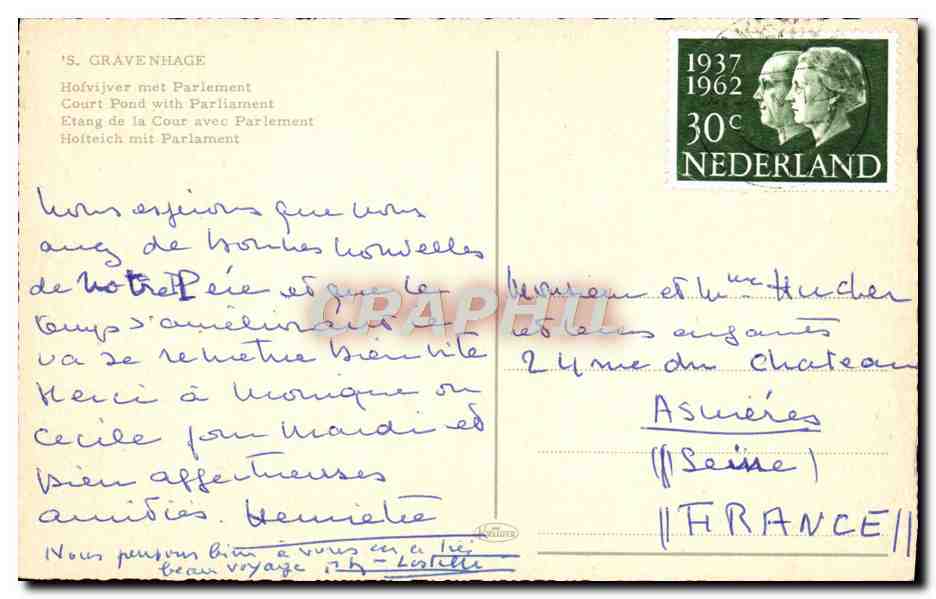 'S. GRAVENHAGE
Hofvijver met Parlement
Court Pond with Parliament
Etang de la Cour avec Parlement
Hofteich mit Parlament
1937
1962
30c
NEDERLAND
Nous espérons que vous
avez de bonnes nouvelles
de notre Père et que le
temps s'améliorant il
va se remettre bien vite
Merci à Monique ou
Cecile pour Mardi et
bien affectueuses
amitiés. Henriette
Nous pensons bien à vous on a très
beau voyage
Monsieur et Mme Hucher
et leurs enfants
24 rue du Chateau
Asnières
(Seine)
FRANCE
CRAPHU